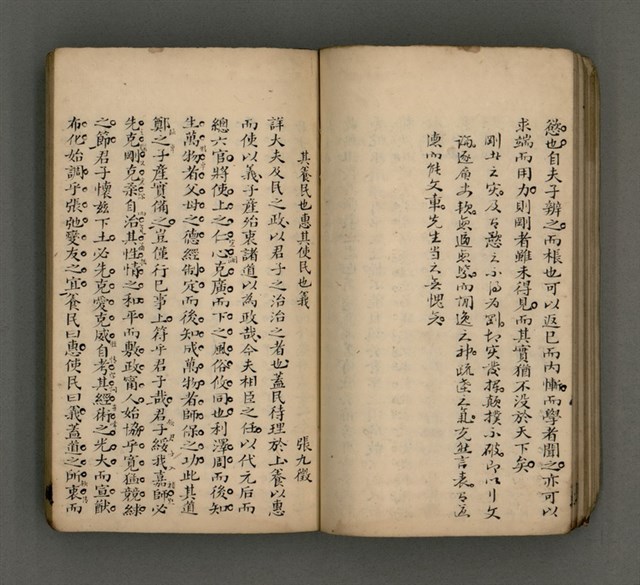 慾也自夫子辨之而棖也可以返已而內慚而學者聞之亦可以
求端而用力則剛者雖未得見而其實猶不没於天下矣
剛母之突及慾之不同為剴切突發揮顛撲不破即以行文
論逐層卸
陳而能文東先生當之無愧矣
其養民也惠其使民也義
張九徵
詳大夫及民之政以君子之治治之者也蓋民待理於上養以惠
而使以義子產殆衷諸道以為政哉今夫相臣之任以代元后而
總六官將使上之仁心克廣而下之風俗攸同也利澤周而後知
生萬物者父母之德經制定而後知成萬物者師保之功此其道
鄭之子產實備之豈僅行已事上符乎君子哉君子綏我嘉師必
先克剛克柔自治其性情之和平而敷政甯人始協乎寬猛競絿
之節君子懷兹下土必先克愛克威自考其經術之光大而宣猷
布化始調乎張弛變友之宜養民曰惠使民曰義蓋道之所衷而